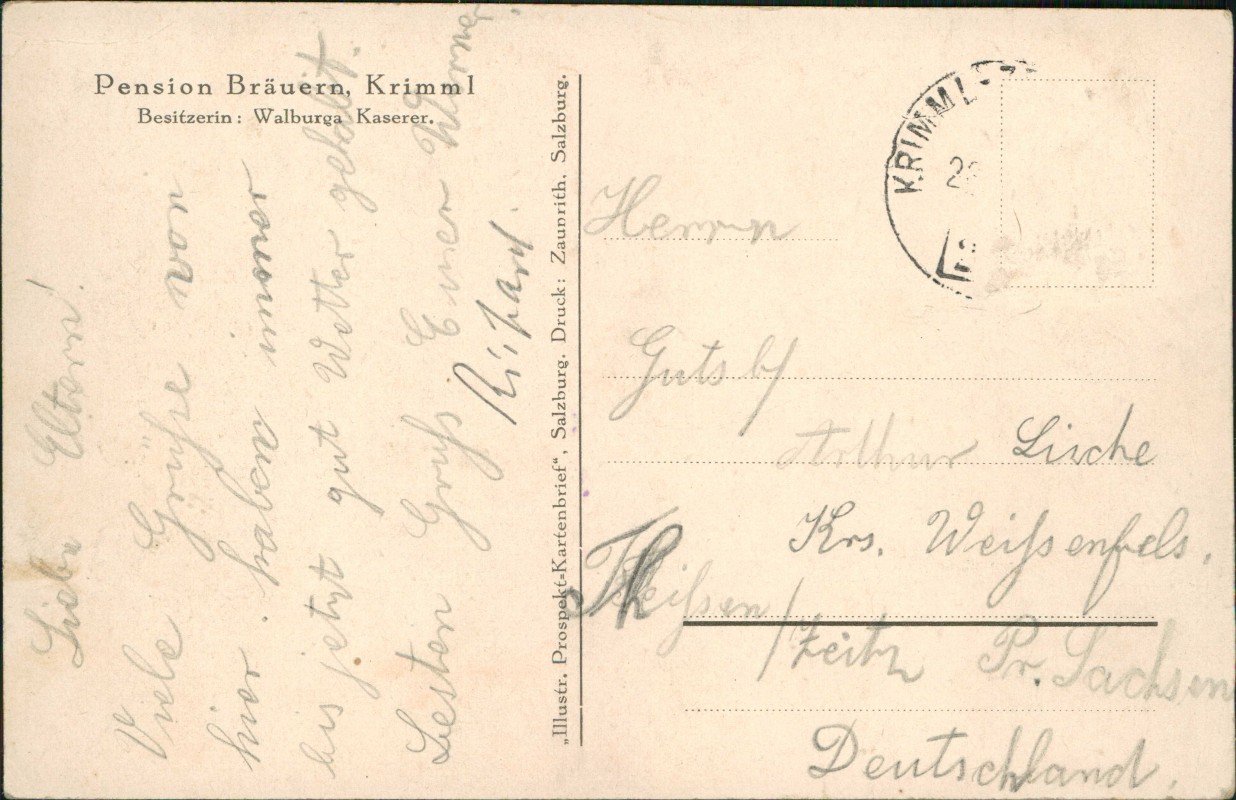 Pension Bräuern, Krimml
Besitzerin: Walburga Kaserer.
Liebe Eltern!
Viele Grüße von
hier. haben immer
bis jetzt gut Wetter gehabt.
Besten Gruß Euer Werner
Richard.
„Illustr. Prospekt=Kartenbrief“, Salzburg. Druck: Zaunrith. Salzburg.
KRIMML
Herrn
Guts b/
Arthur
Krs. Weißenfels.
Theißen /
Zeitz Pr. Sachsen
Deutschland.